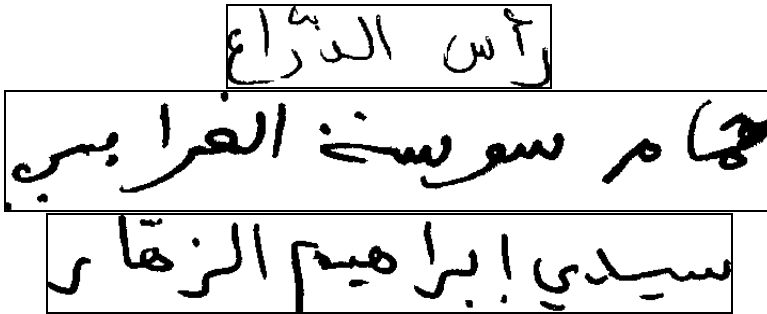 رأس الذّراع
حمام سوسة الغرابي
سيدي إبراهيم الزهّار